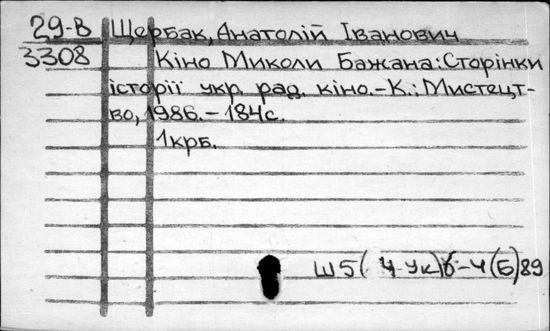 29-В Щербак, Анатолій Іванович
3308 Кіно Миколи Бажана: Сторінки
історії укр. рад. кіно.-К.: Мистецт-
во, 1986.-184с.
1крб.
Ш5(4Ук)6-4(Б)89